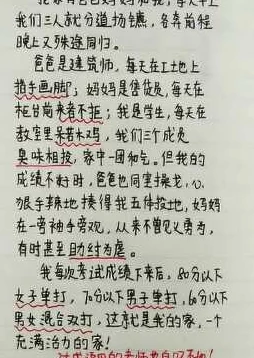 我们三人就分道扬镳，各奔前程
晚上又殊途同归。
爸爸是建筑师，每天在工地上
指手画脚；妈妈是售货员，每天在
柜台前来者不拒；我是学生，每天在
教室里呆若木鸡，我们三个成员
臭味相投，家中一团和气。但我的
成绩不好时，爸爸也同室操戈，心
狠手辣地揍得我五体投地，妈妈
在一旁袖手旁观，从来不曾见义勇为，
有时甚至助纣为虐。
我每次考试成绩下来后，80分以下
女子单打，70分以下男子单打，60分以下
男女混合双打，这就是我的家，一个
充满活力的家！